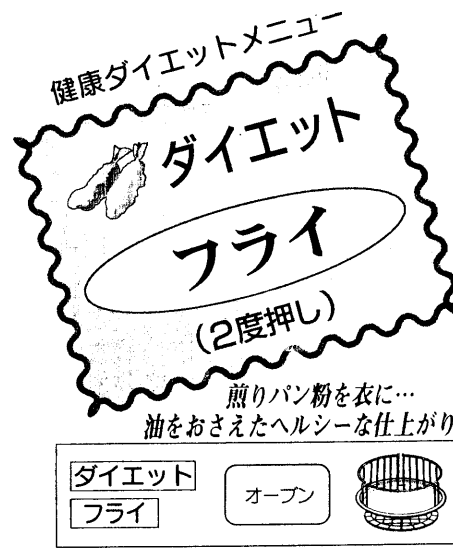 健康ダイエットメニュー
ダイエット
フライ
(2度押し)
煎りパン粉を衣に…
油をおさえたヘルシーな仕上がり
ダイエット
フライ
オーブン